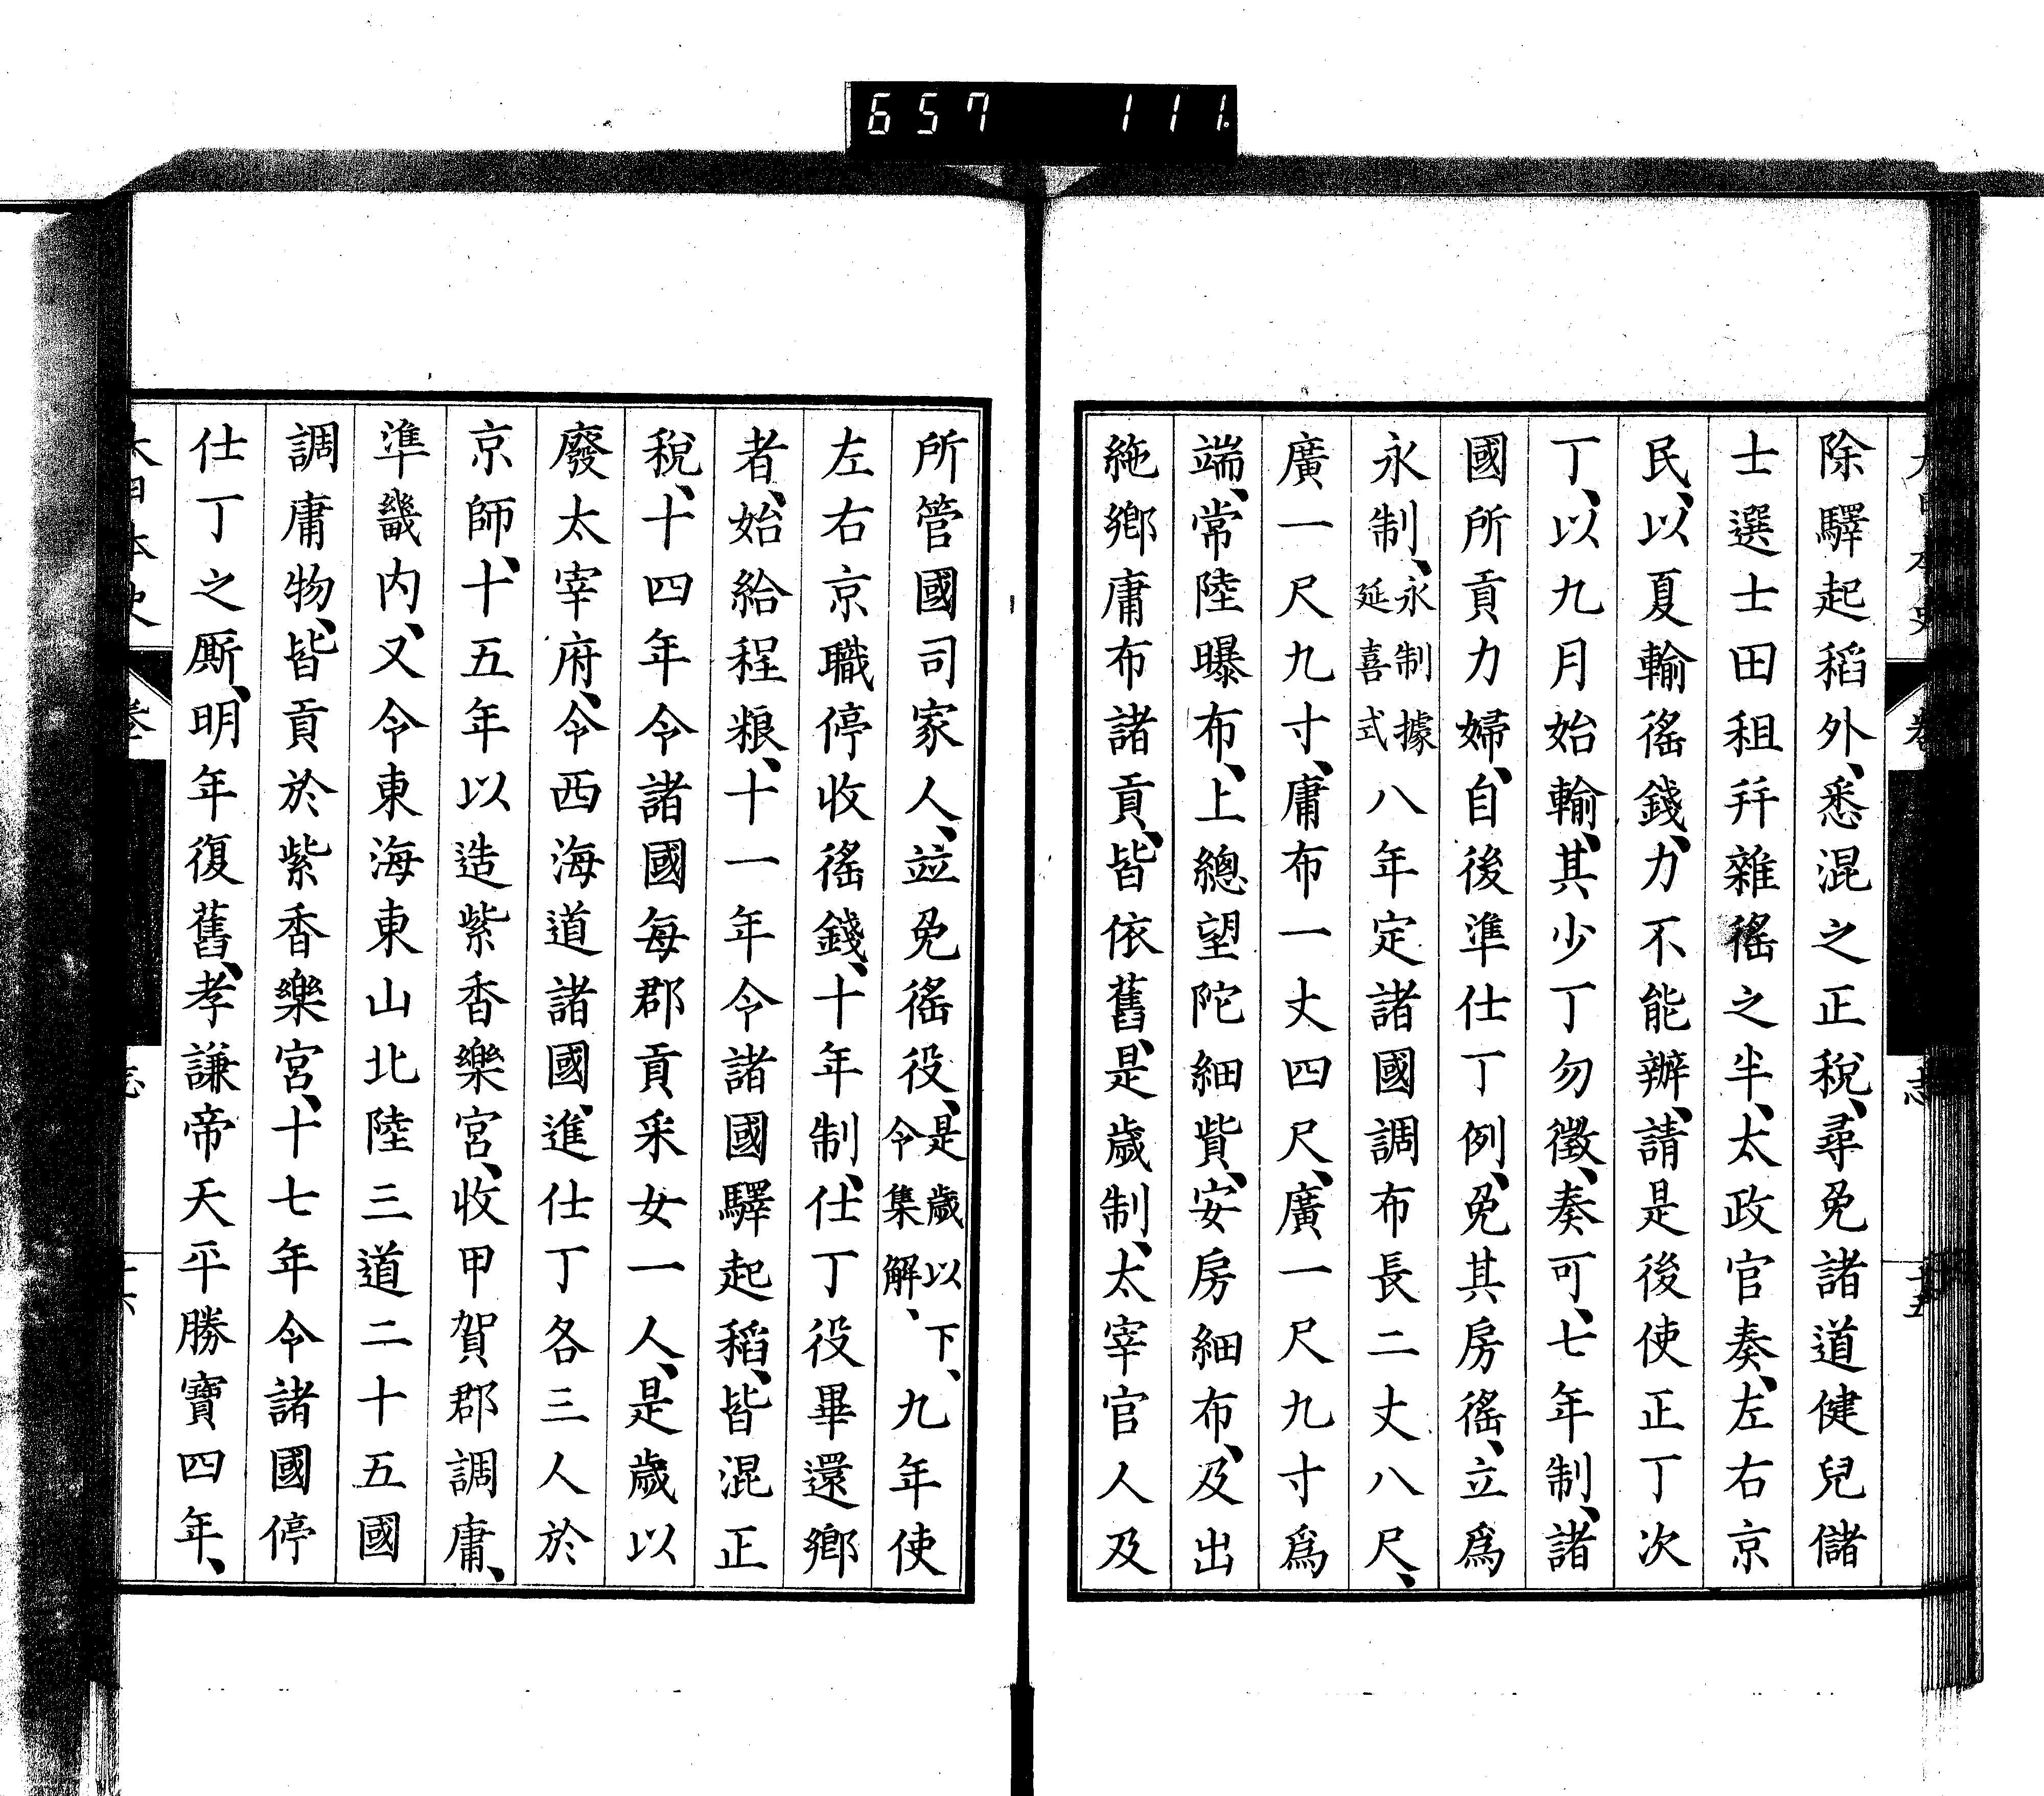 657 111
除驛起稻外、悉混之正稅、尋免諸道健兒儲
士選士田租幷雜徭之半、太政官奏、左右京
民、以夏輸徭錢、力不能辦、請是後使正丁次
丁、以九月始輸、其少丁勿徵、奏可、七年制、諸
國所貢力婦、自後準仕丁例、免其房徭、立爲
永制、永制據延喜式八年定諸國調布長二丈八尺、
廣一尺九寸、庸布一丈四尺、廣一尺九寸爲
端、常陸曝布、上總望陀細貲、安房細布、及出
絁鄕庸布諸貢、皆依舊、是歲制、太宰官人及
所管國司家人、竝免徭役、是歲以下、令集解、九年使
左右京職停收徭錢、十年制、仕丁役畢還鄕
者、始給程粮、十一年令諸國驛起稻、皆混正
稅、十四年令諸國每郡貢采女一人、是歲以
廢太宰府、令西海道諸國、進仕丁各三人於
京師、十五年以造紫香樂宮、收甲賀郡調庸、
準畿內、又令東海東山北陸三道二十五國
調庸物、皆貢於紫香樂宮、十七年令諸國停
仕丁之厮、明年復舊、孝謙帝天平勝寶四年、